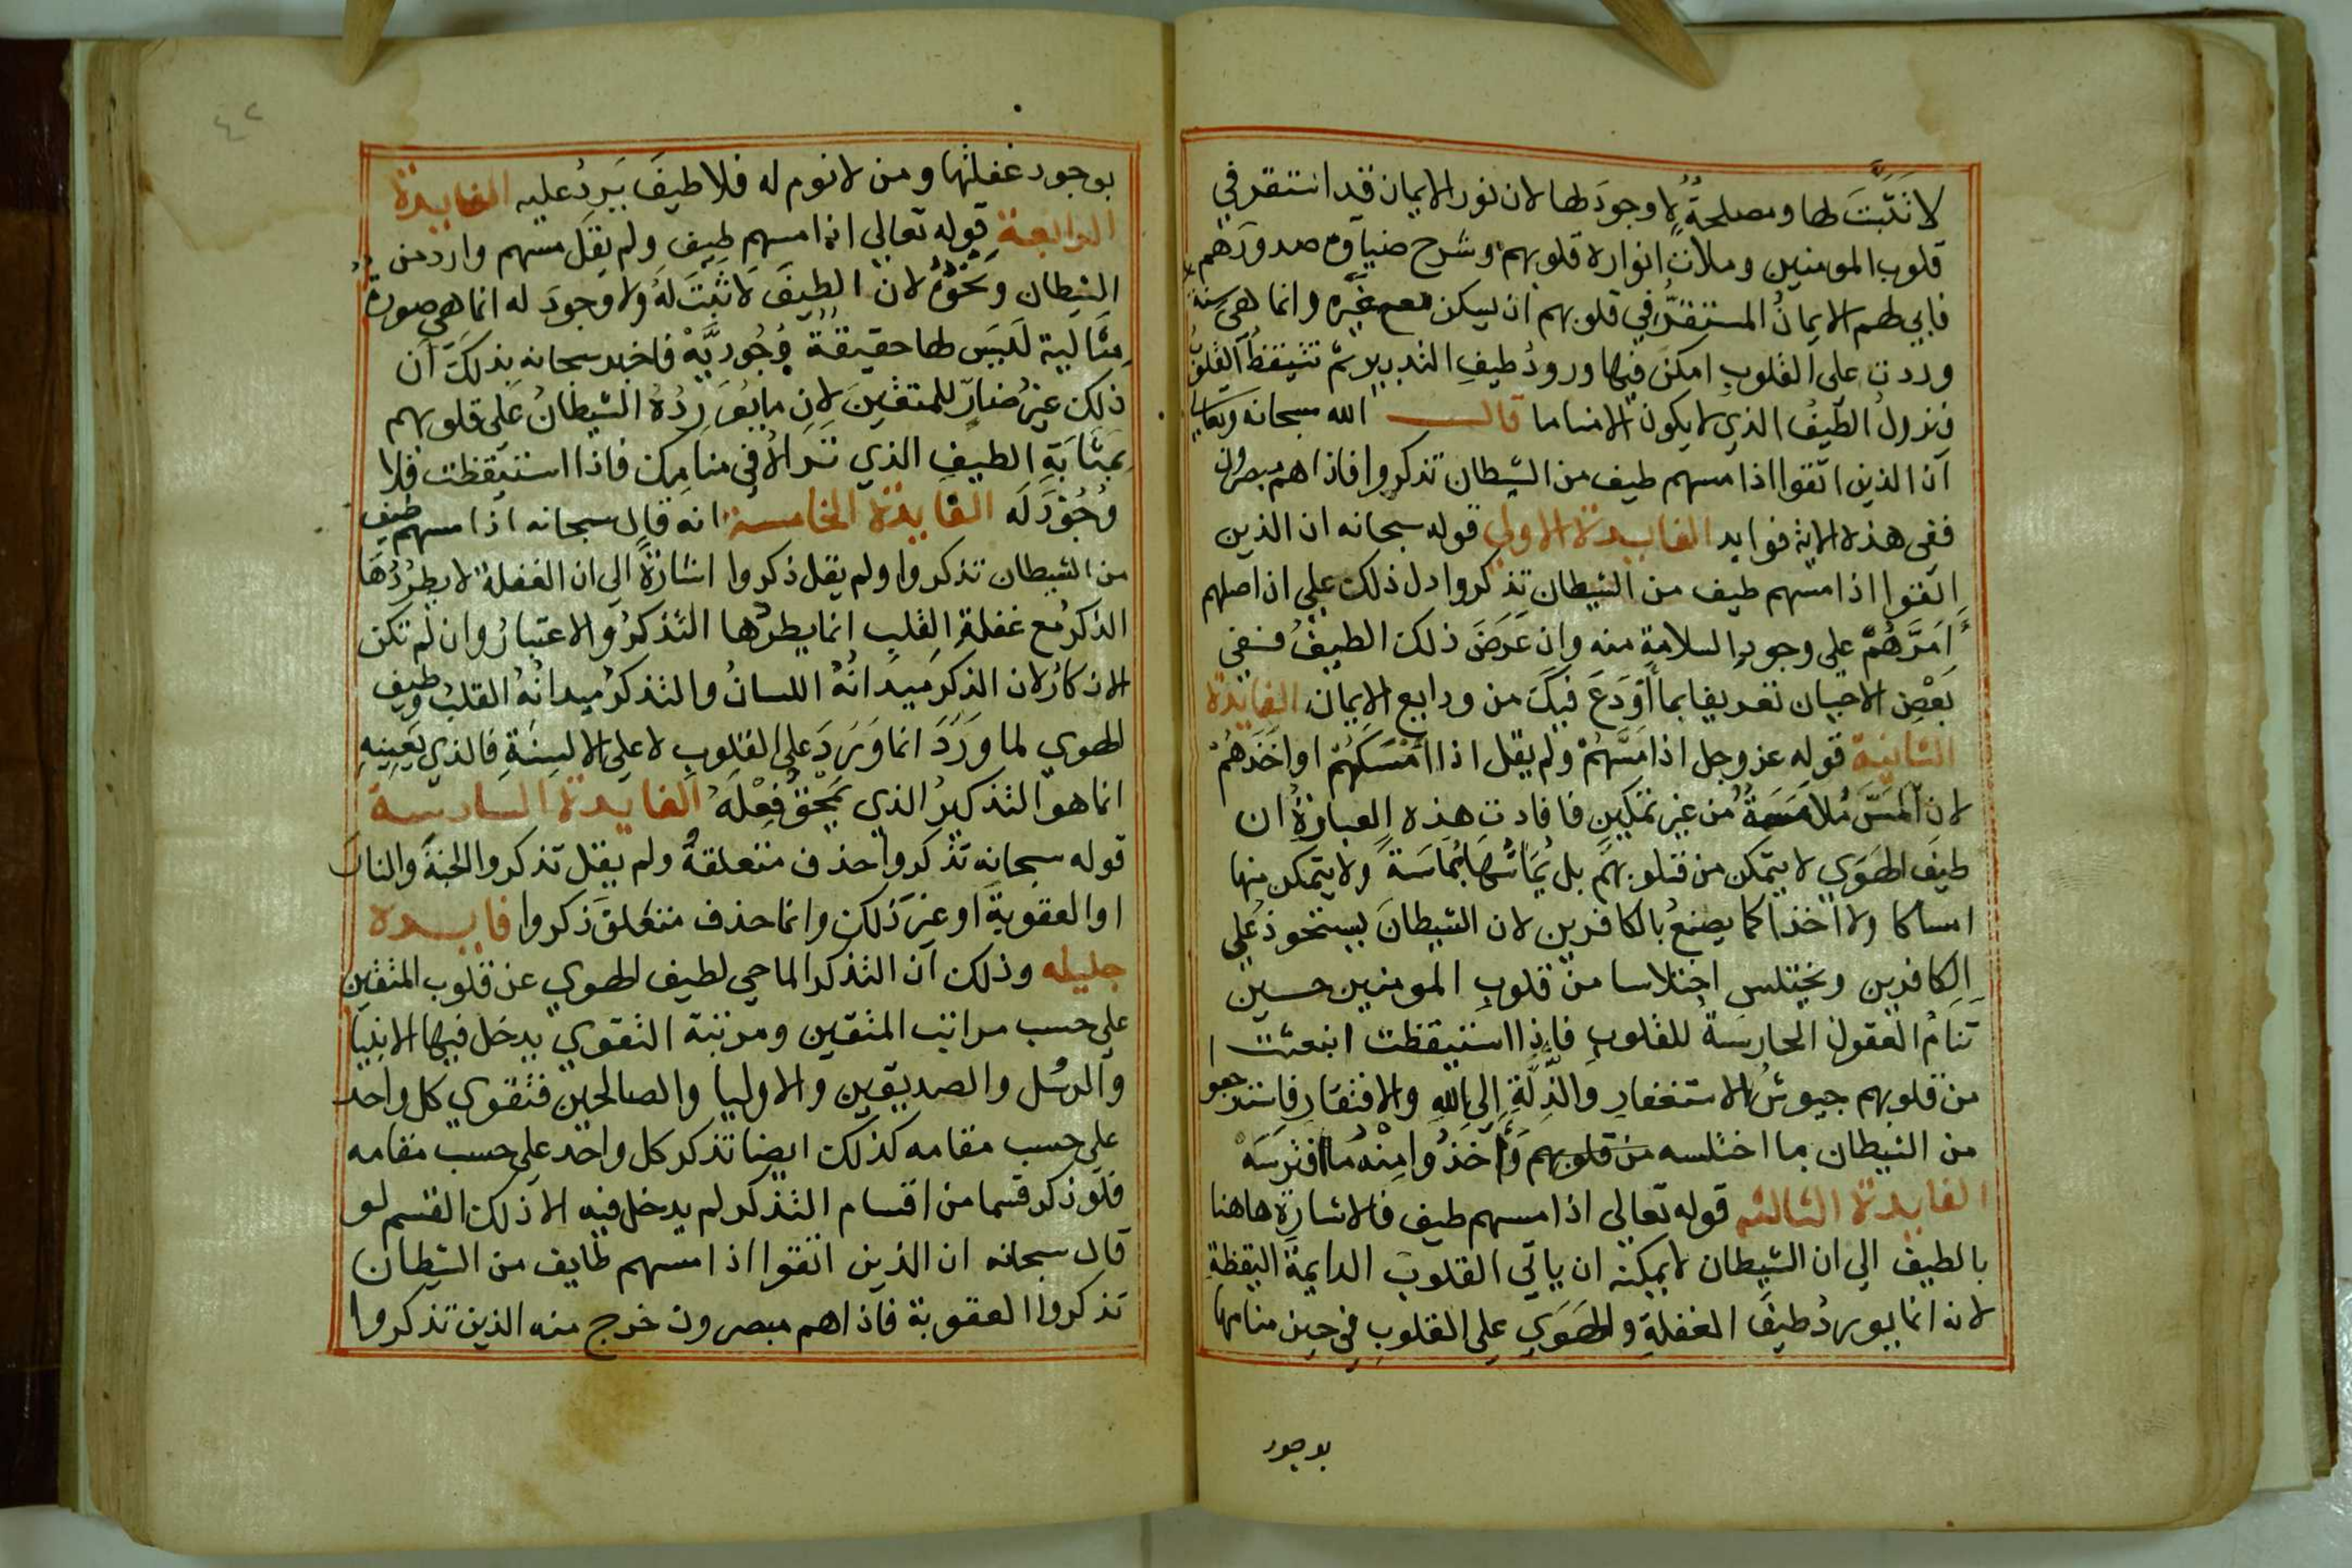 لا تثبت لها ومصلحة لا وجود لها لان نور الايمان قد استقر في
قلوب المومنين وملأت انواره قلوبهم وشرح ضياوه صدورهم
فابي لهم الايمان المستقر في قلوبهم ان يسكن معه غيره وانما هي سنة
وردت على القلوب امكن فيها ورود طيف التدبير ثم تتيقظ القلوب
فنزول الطيف الذي لا يكون الا مناما قال الله سبحانه وتعالي
ان الذين اتقوا اذا مسهم طيف من الشيطان تذكروا فاذا هم مبصرون
ففي هذه الاية فوايد الفايدة الاولي قوله سبحانه ان الذين
اتقوا اذا مسهم طيف من الشيطان تذكروا دل ذلك على ان اصلهم
امرهم على وجود السلامة منه وان عرض ذلك الطيف ففي
بعض الاحيان تعريفا بما أودع فيك من ودايع الايمان الفايدة
الثانية قوله عز وجل اذا مسهم ولم يقل اذا امسكهم او اخذهم
لان المس ملامسة من غير تمكين فافادت هذه العبارة ان
طيف الهوي لا يتمكن من قلوبهم بل يماسها مماسة ولا يتمكن منها
امساكا ولا اخذا كما يصنع بالكافرين لان الشيطان يستحوذ علي
الكافرين ويختلس اختلاسا من قلوب المومنين حين
تنام العقول الحارسة للقلوب فاذا استيقظت انبعثت
من قلوبهم جيوش الاستغفار والذلة الى الله والافتقار فاسترجعوا
من الشيطان ما اختلسه من قلوبهم وأخذوا منه ما افترسه
الفايدة الثالثة قوله تعالي اذا مسهم طيف فالاشارة هاهنا
بالطيف الي ان الشيطان لا يمكنه ان ياتي القلوب الدايمة اليقظة
لانه انما يورد طيف الغفلة والهوي على القلوب في حين منامها
بوجود
٤٢
بوجود غفلتها ومن لا نوم له فلا طيف يرد عليه الفايدة
الرابعة قوله تعالي اذا مسهم طيف ولم يقل مسهم وارد من
الشيطان ونحوه لان الطيف لا تثبت له ولا وجود له انما هي صورة
مثالية ليس لها حقيقة وجودية فاخبر سبحانه بذلك أن
ذلك غير ضار للمتقين لان ما يورده الشيطان على قلوبهم
بمثابة الطيف الذي تراه في منامك فاذا استيقظت فلا
وجود له الفايدة الخامسة انه قال سبحانه اذا مسهم طيف
من الشيطان تذكروا ولم يقل ذكروا اشارة الى ان الغفلة لا يطردها
الذكر مع غفلة القلب انما يطردها التذكر والاعتبار وان لم تكن
الاذكار لان الذكر ميدانه اللسان والتذكر ميدانه القلب وطيف
الهوي لما ورد انما ورد على القلوب لا على الالسنة فالذي يعينه
انما هو التذكير الذي يمحق فعله الفايدة السادسة
قوله سبحانه تذكروا حذف متعلقه ولم يقل تذكروا الجنة والنار
او العقوبة او غير ذلك وانما حذف متعلق ذكروا فايده
جليله وذلك ان التذكر الماحي لطيف الهوي عن قلوب المتقين
على حسب مراتب المتقين ومرتبة التقوي يدخل فيها الانبيا
والرسل والصديقين والاوليا والصالحين فتقوي كل واحد
على حسب مقامه كذلك ايضا تذكر كل واحد على حسب مقامه
فلو ذكر قسما من اقسام التذكر لم يدخل فيه الا ذلك القسم لو
قال سبحانه ان الذين اتقوا اذا مسهم طايف من الشيطان
تذكروا العقوبة فاذا هم مبصرون خرج منه الذين تذكروا